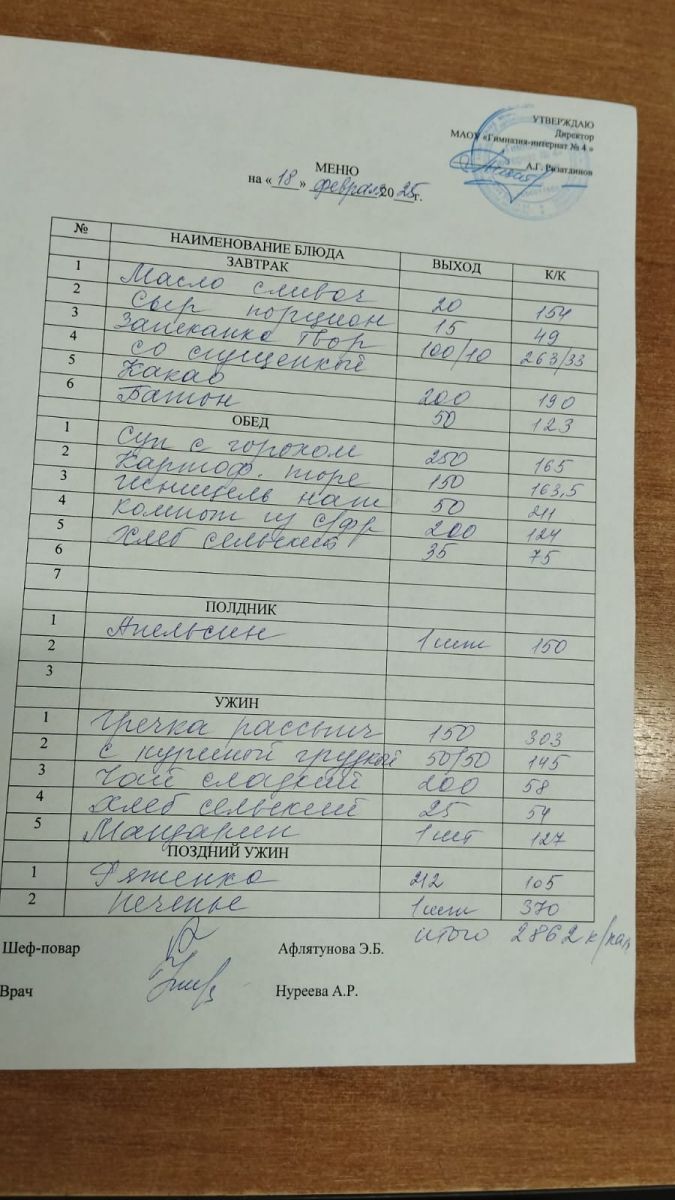 УТВЕРЖДАЮ
Директор
МАОУ «Гимназия-интернат № 4 »
А.Г. Ризатдинов
МЕНЮ
на « 18 » февраля 20 25 г.
№ НАИМЕНОВАНИЕ БЛЮДА ВЫХОД К/К
ЗАВТРАК
1 Масло сливоч 20 154
2 Сыр порцион 15 49
3 Запеканка твор 100/10 263/33
4 со сгущенкой
5 Какао 200 190
6 Батон 50 123
ОБЕД
1 Суп с горохом 250 165
2 Картоф. пюре 150 163,5
3 Шницель нат 50 211
4 Компот из с/фр 200 124
5 Хлеб сельский 35 75
6
7
ПОЛДНИК
1 Апельсин 1 шт 150
2
3
УЖИН
1 Гречка рассыпч 150 303
2 с куриной грудкой 50/50 145
3 Чай сладкий 200 58
4 Хлеб сельский 25 54
5 Мандарин 1 шт 127
ПОЗДНИЙ УЖИН
1 Ряженка 212 105
2 Печенье 1 шт 370
итого 2862 к/кал
Шеф-повар Афлятунова Э.Б.
Врач Нуреева А.Р.